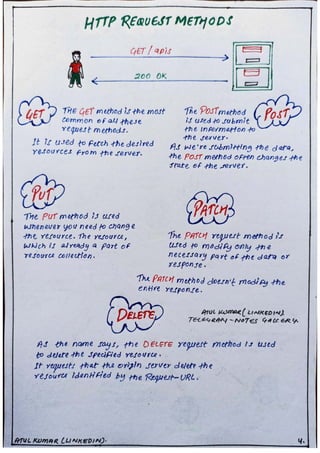 HTTP REQUEST METHODS
GET / apis
200 OK
GET
THE GET method is the most
common of all these
request methods.
It is used to fetch the desired
resources from the server.
The POST method
is used to submit
the information to
the server.
POST
As we're submitting the data,
the POST method often changes the
state of the server.
PUT
The PUT method is used
whenever you need to change
the resource. The resource,
which is already a part of
resource collection.
PATCH
The PATCH request method is
used to modify only the
necessary part of the data or
response.
The PATCH method doesn't modify the
entire response.
DELETE
ATUL KUMAR (LINKEDIN)
TELEGRAM - NOTES GALLERY.
As the name says, the DELETE request method is used
to delete the specified resource.
It requests that the origin server delete the
resource identified by the Request-URL.
ATUL KUMAR (LINKEDIN).
4.